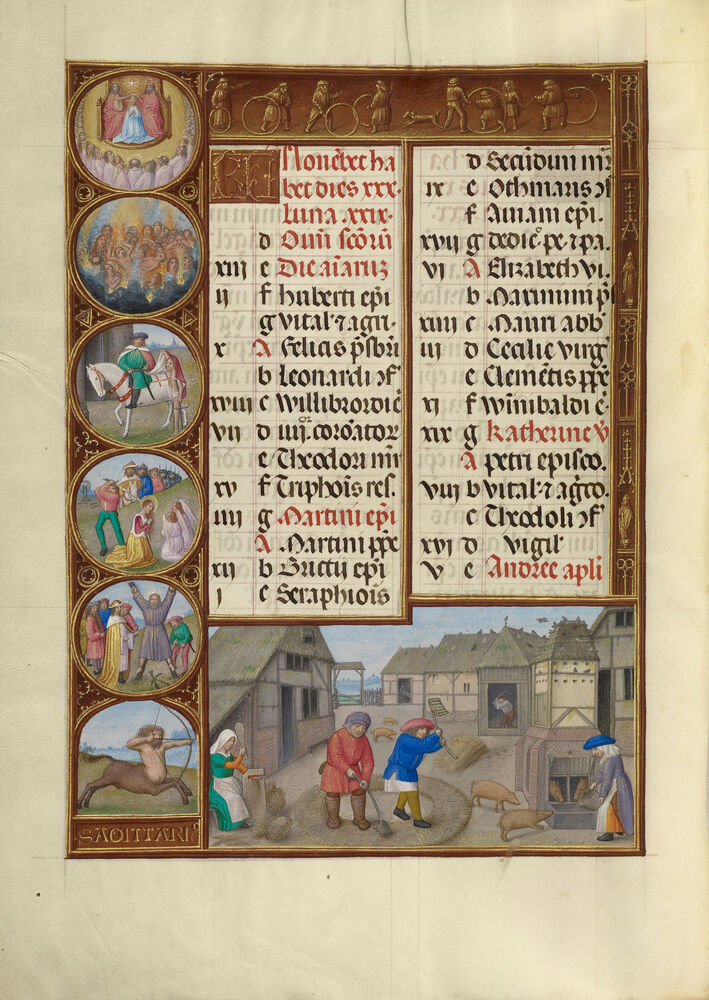 KL Nouēber ha
bet dies xxx.
Luna .xxix.
d Oīm scōrum
xiii e Die aīaruz
ii f huberti epi
g vital' ⁊ agri.
x A Felicis p̄sbri
b Leonardi cf'
xviii c Willibrordi ē
vii d iiij. coronator
e Theodori mr̄
xv f Triphois res.
iiii g Martini epi
A Martini ppe
xii b Brictii epi
i c Seraphiois
d Secūdini mr̄
ix e Othmaris cf
f Aniani epi.
xvii g dedic' pe. ⁊ pa.
vi A Elizabeth vi.
b Maximini p̄
xiiii c Mauri abb
iii d Cecilie virg'
e Clemētis ppe
xi f Winibaldi ē
xix g Katherine v̄
A petri episco.
viii b vital' ⁊ agrco.
c Theodoli cf'
xvi d vigil'
v e Andree apli
SAGITTARIꝰ